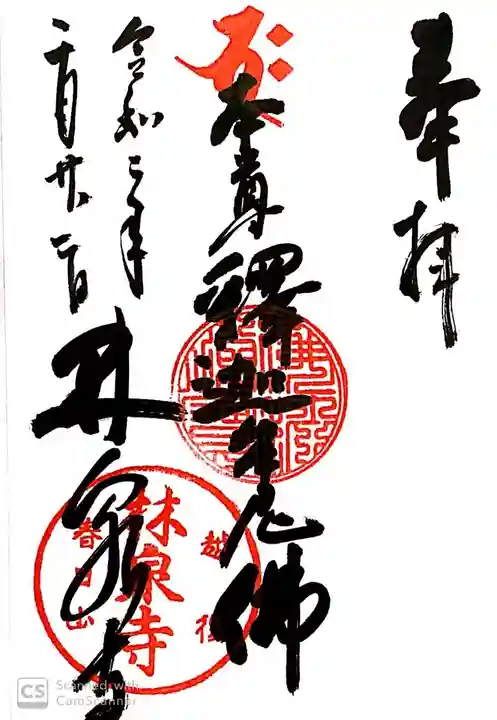 奉拝
本尊釋迦牟尼佛
令和二年
十一月廿二日
林泉寺
越後
林泉寺
春日山
CS Scanned with
CamScanner